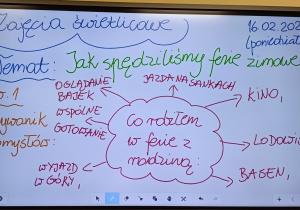 Zajęcia świetlicowe
16.02.202
(poniedział
Temat: Jak spędziliśmy ferie zimowe
OGLĄDANIE
BAJEK
JAZDA NA SANKACH
KINO,
WSPÓLNE
GOTOWANIE
Co robiłem
w ferie z
rodziną:
LODOWIS
WYJAZD
W GÓRY,
BASEN,